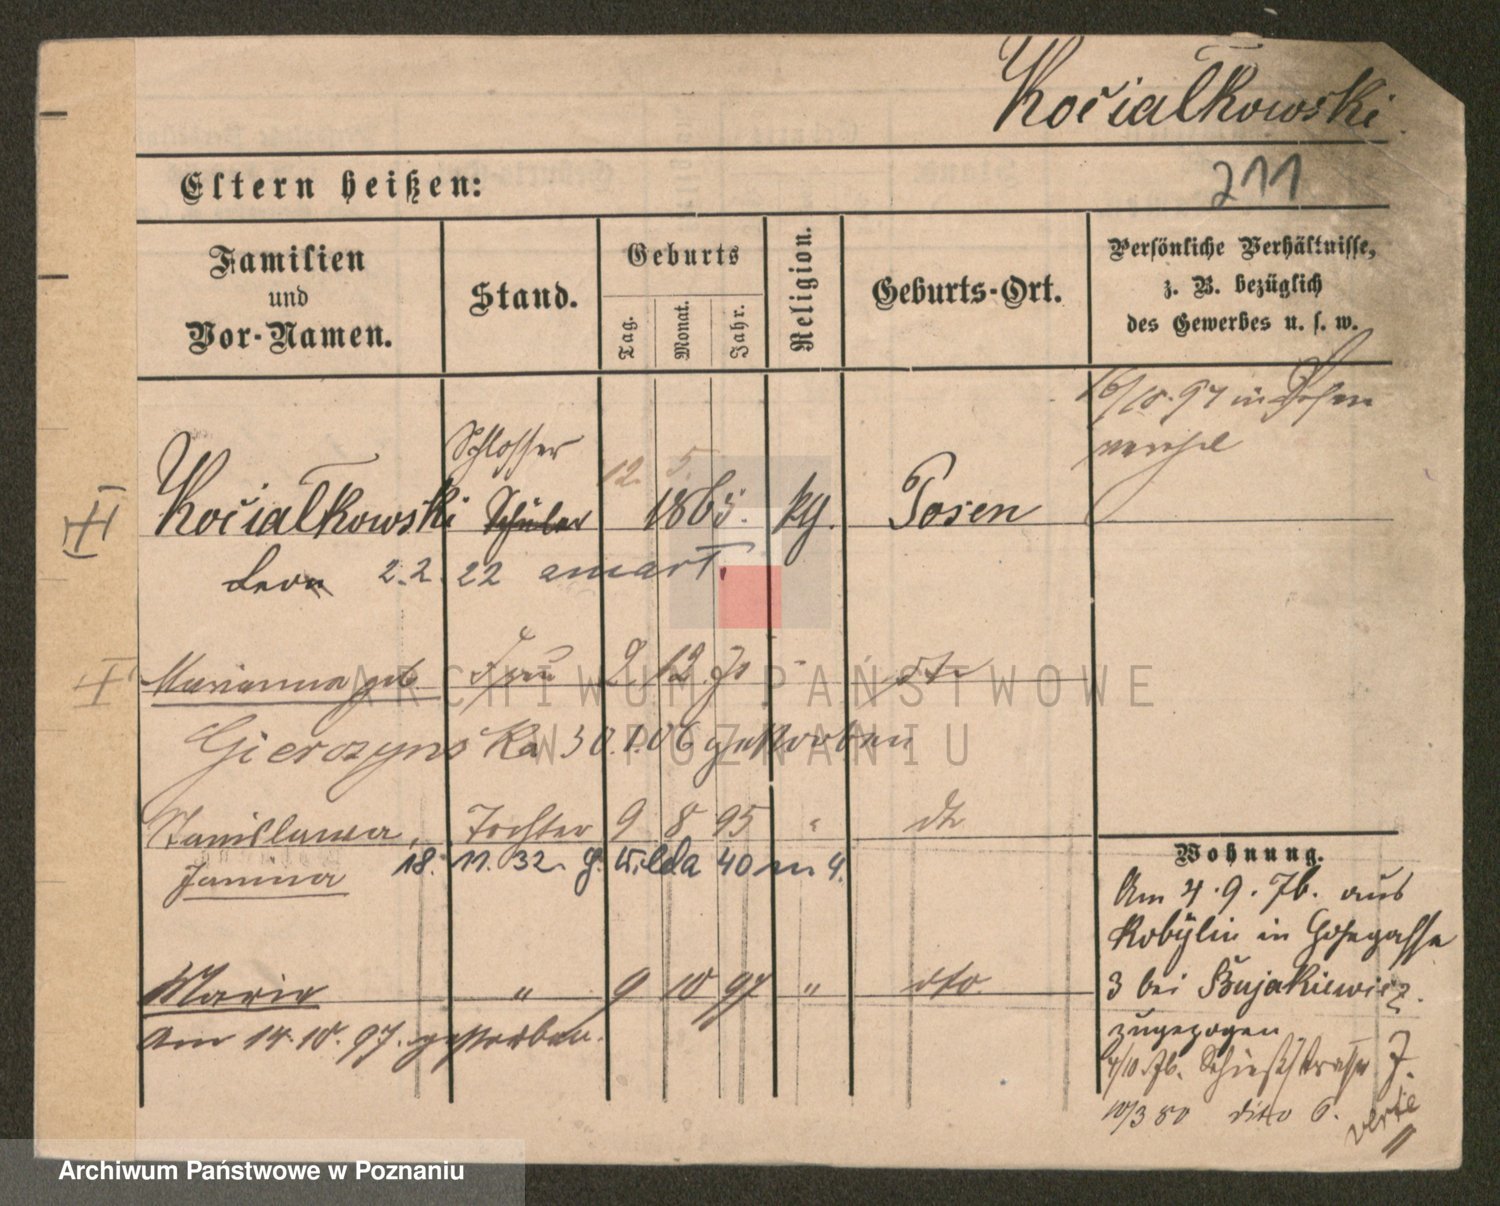 Kočiałkowski
211
Eltern heißen:
Familien und Vor-Namen.
Stand.
Geburts
Tag.
Monat.
Jahr.
Religion.
Geburts-Ort.
Persönliche Verhältnisse,
z. B. bezüglich
des Gewerbes u. s. w.
16/10.97 in Posen
Schlosser
12. 5.
Kočiałkowski Schüler 1865. kg. Posen
Leon 2.2.22 amart.
Marianna geb Frau 2 12 71 " dto
Gierczynska 30.1.06 gestorben
Stanislawa, Tochter 9 8 95 " dto
Janina 18. 11. 32 G. Wilda 40 m 4.
Marie " 9 10 97 " dto.
Am 14.10.97. gestorben.
Wohnung.
Am 4.9.76. aus
Kobylin in
3 bei Bujakiewicz.
zugezogen
4/10.76. Schießstrasse 7.
10/3 80 dito 6.
verte
ARCHIWUM PAŃSTWOWE
W POZNANIU
Archiwum Państwowe w Poznaniu